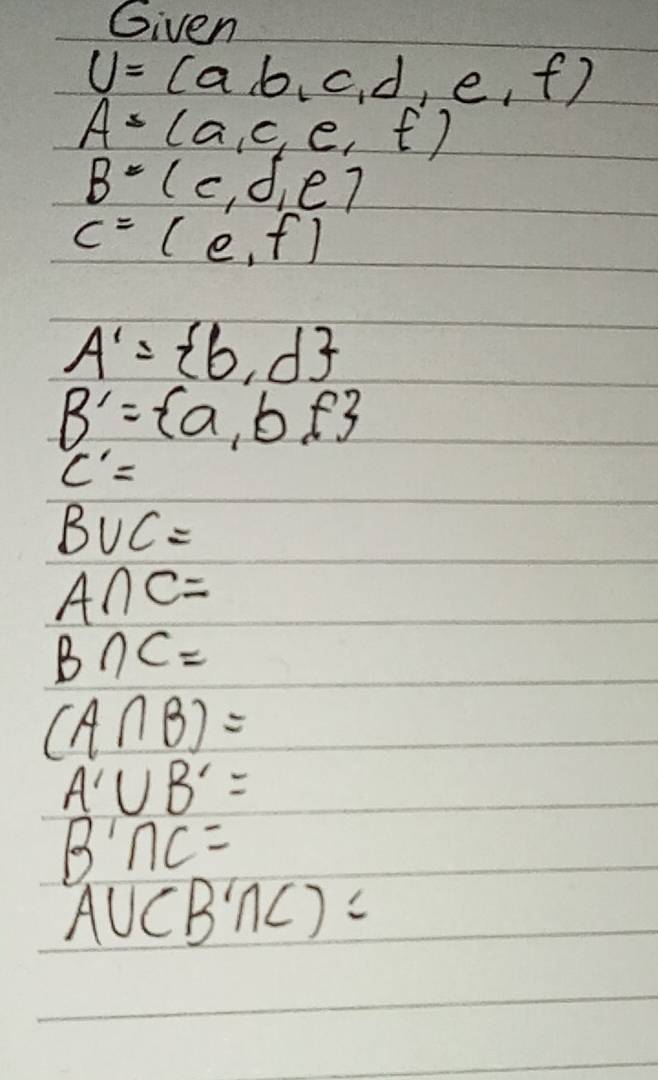 Given
U = (a b, c, d, e, f)
A = (a, c, e, f)
B = (c, d, e)
C = (e, f)
A' = {b, d}
B' = {a, b f}
C' =
B∪C =
A∩C =
B∩C =
(A∩B) =
A'∪B' =
B'∩C =
A∪(B'∩C) =